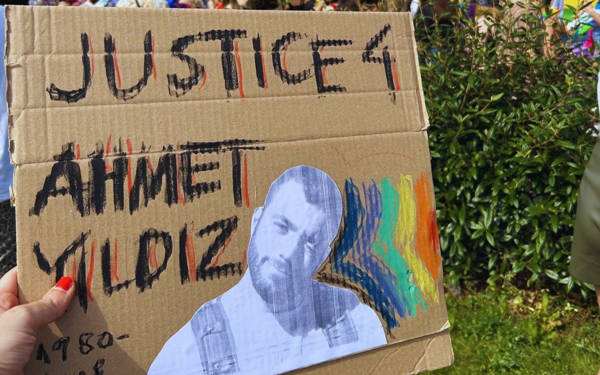 JUSTICE 4
AHMET
YILDIZ
1980-